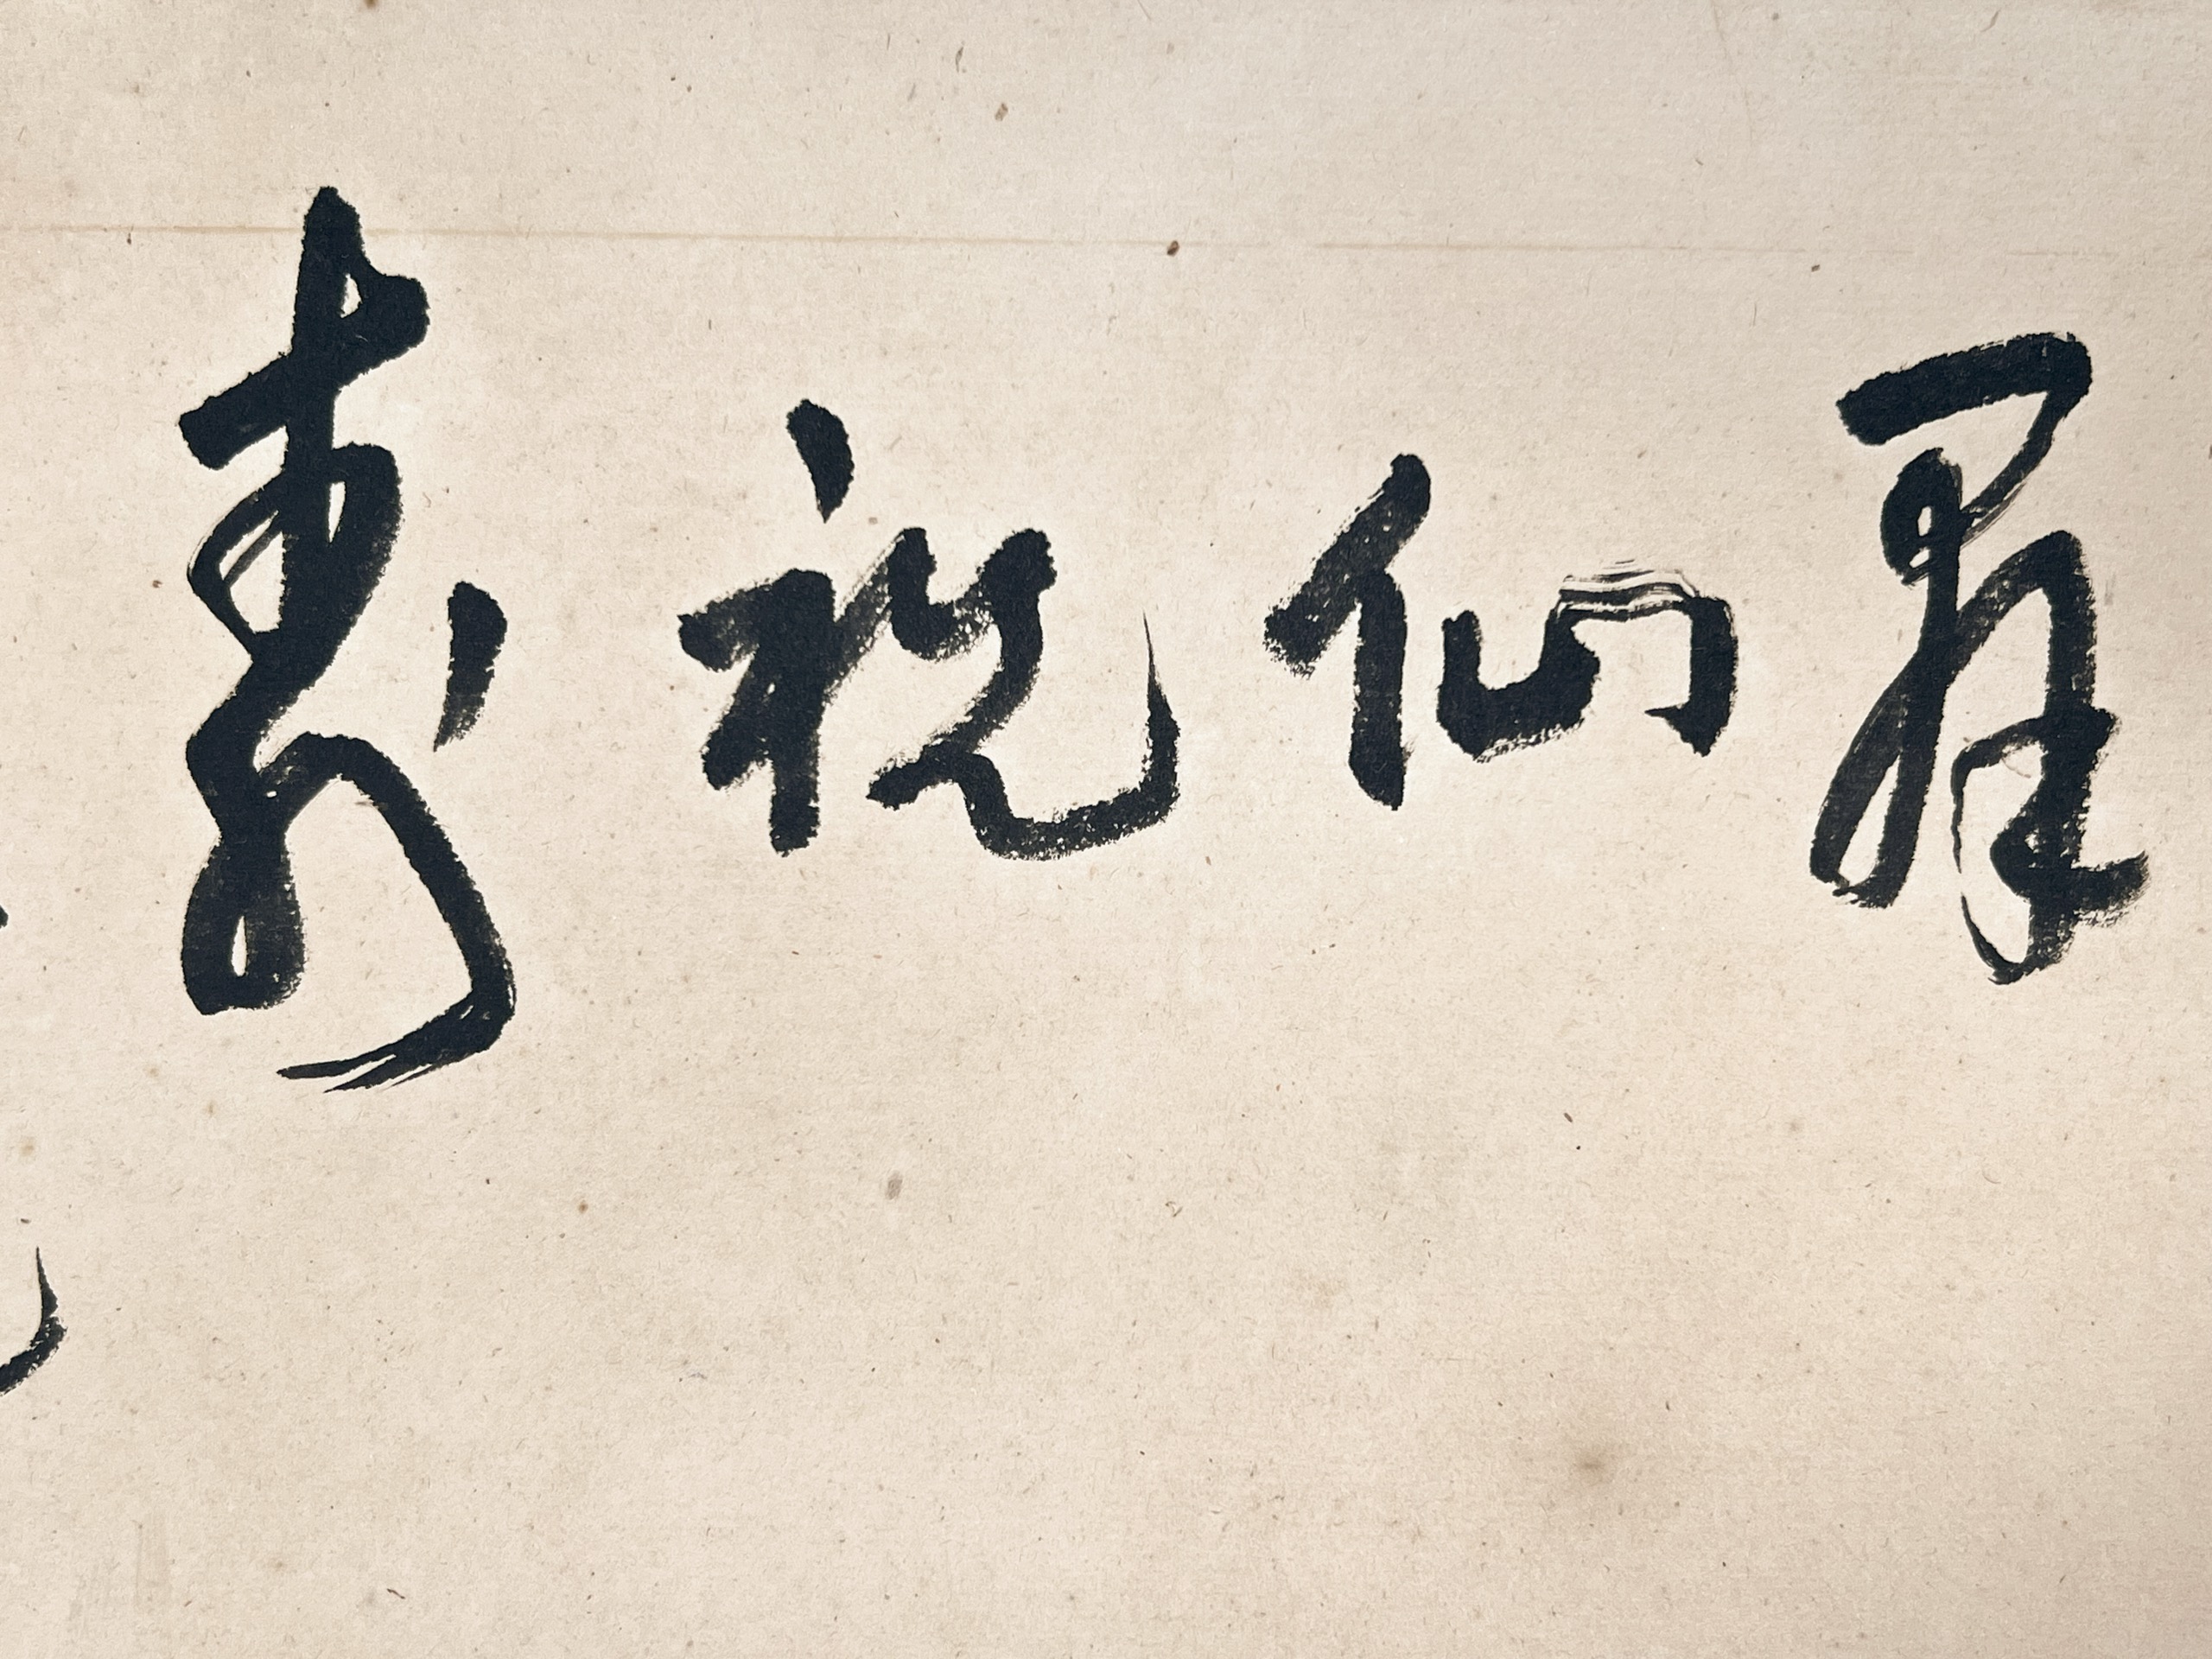 群仙祝壽